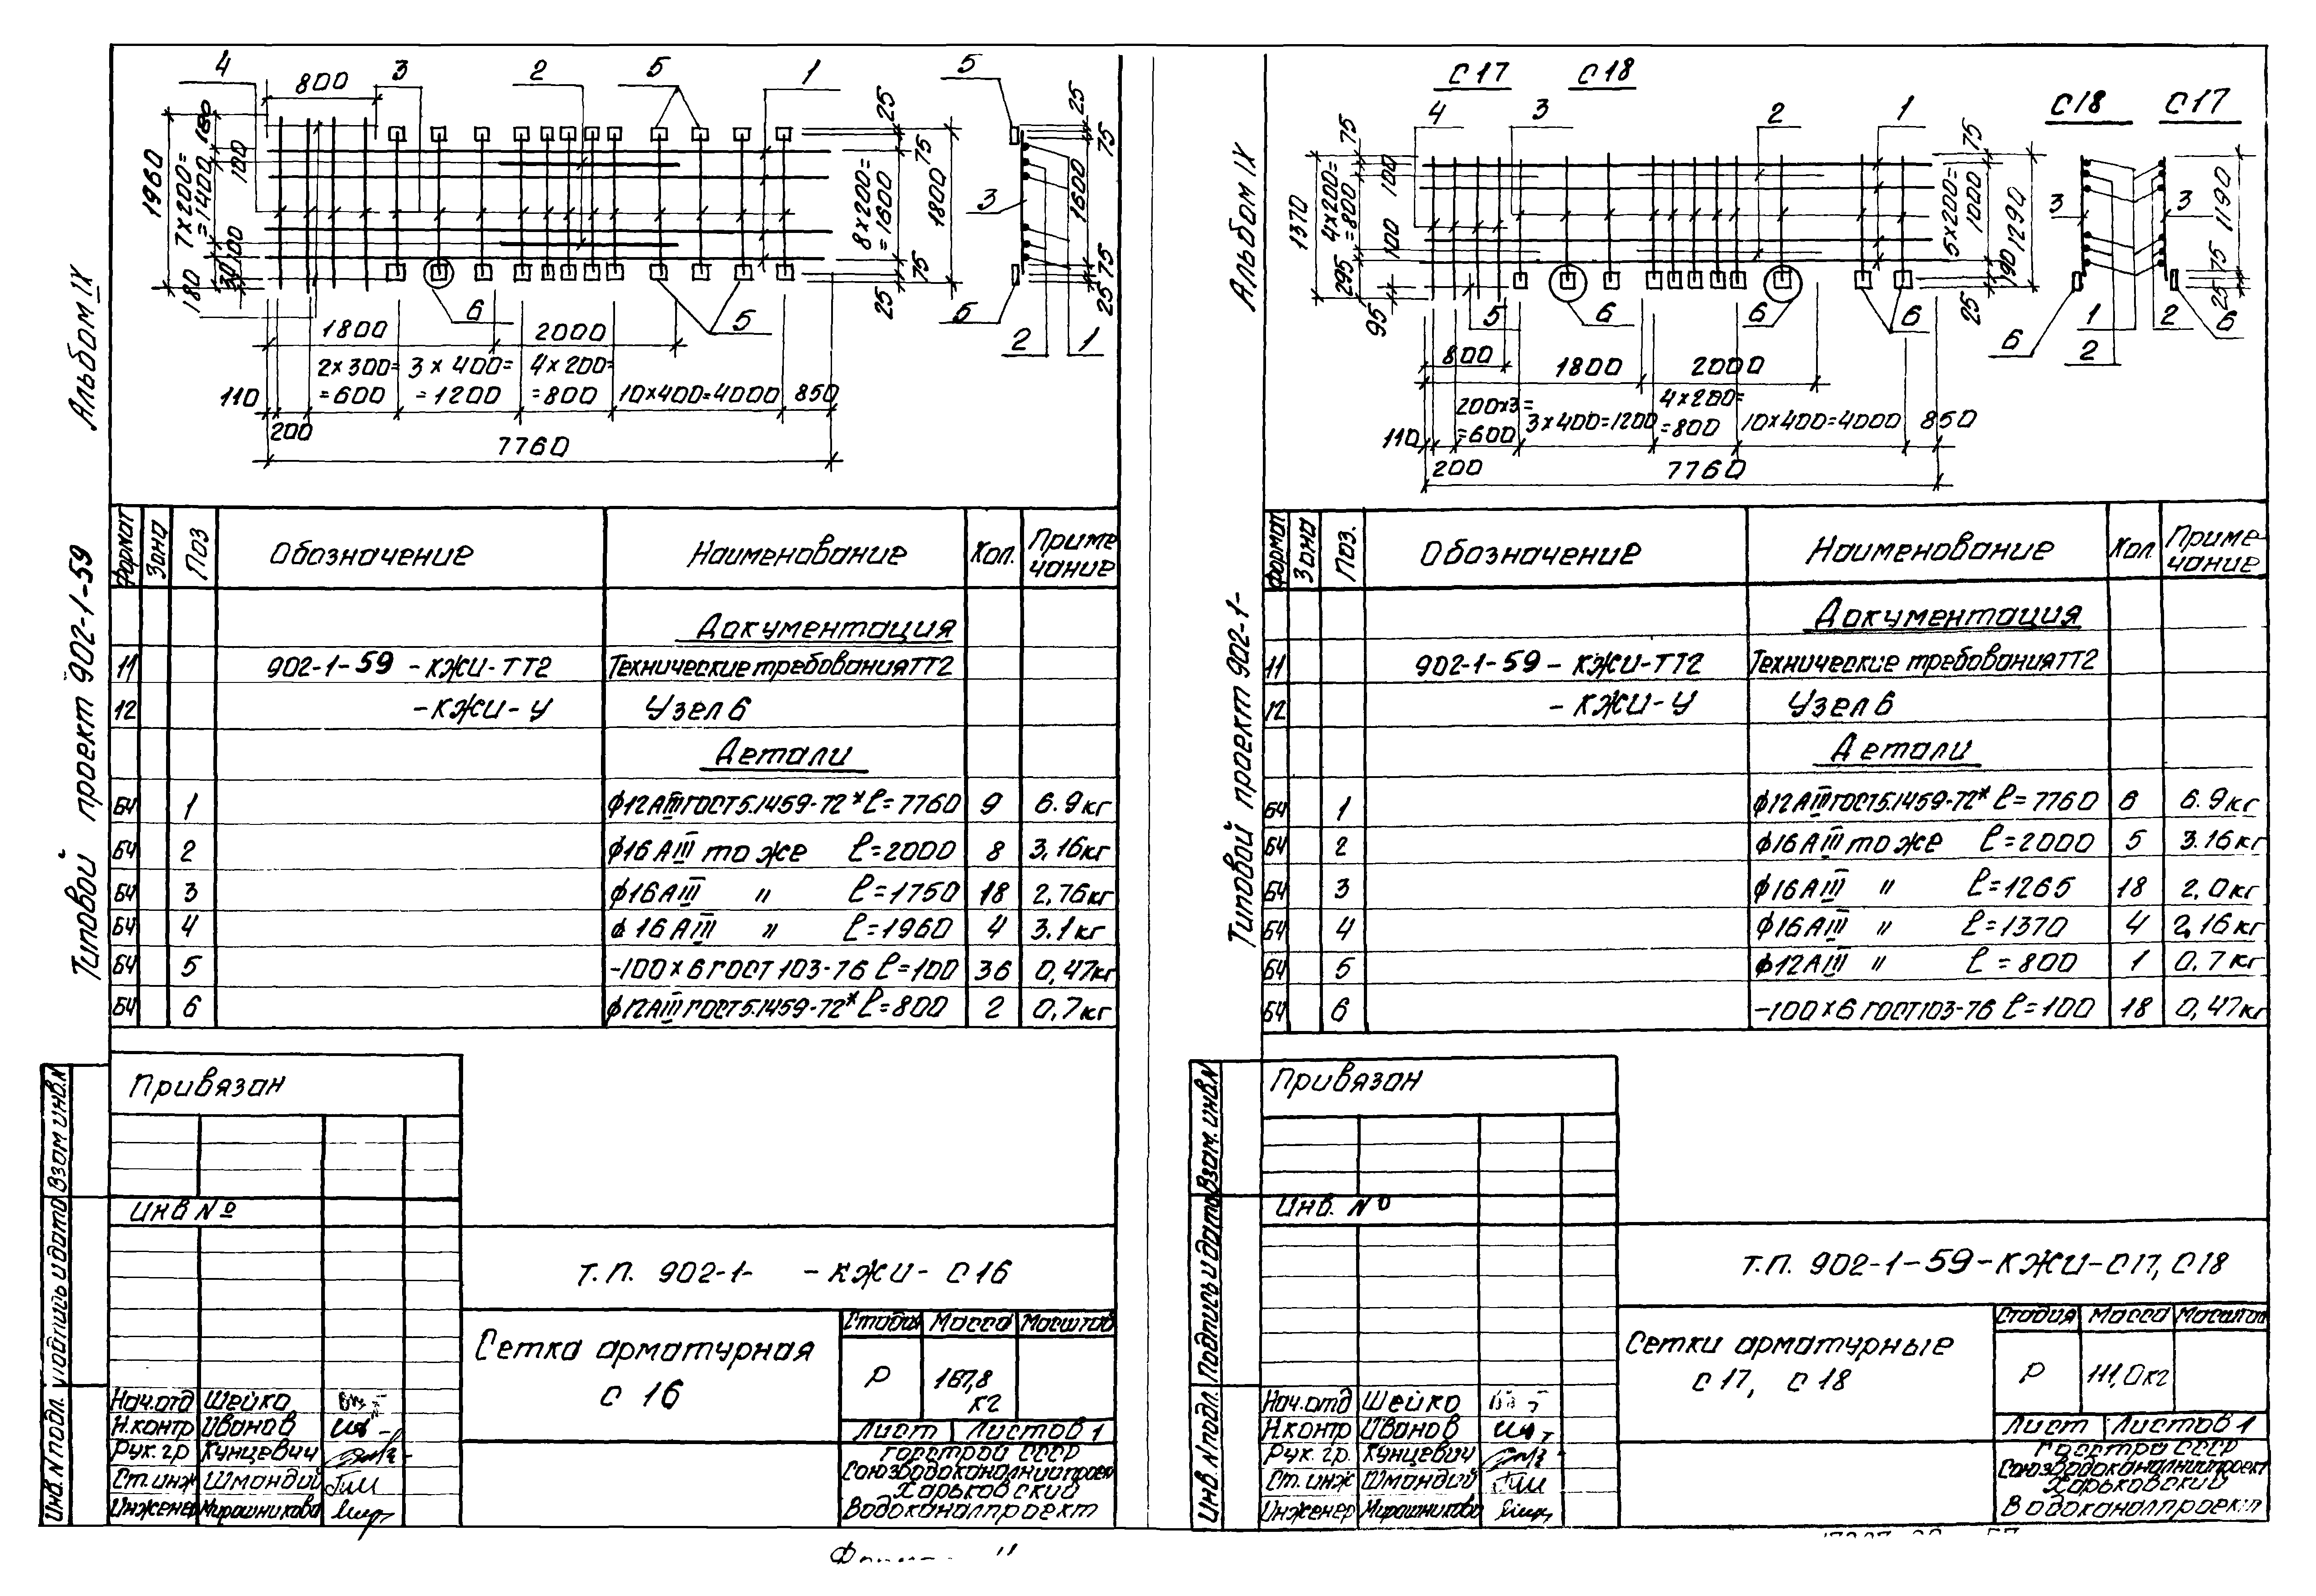 Альбом IX
Типовой проект 902-1-59
4 800 3 2 5 1 5
1960
7×200=
=1400
180
100
100
30
180
25
75
8×200=
=1600
1800
75
25
25
75
1600
3
75
25
5
2 1
6 5
1800 2000
2×300= 3×400= 4×200=
110 =600 =1200 =800 10×400=4000 850
200
7760
Формат Зона Поз Обозначение Наименование Кол. Приме
чание
Документация
11 902-1-59-КЖИ-ТТ2 Технические требования ТТ2
12 -КЖИ-У Узел 6
Детали
БЧ 1 ф12АIII ГОСТ5.1459-72* ℓ=7760 9 6.9кг
БЧ 2 ф16АIII то же ℓ=2000 8 3,16кг
БЧ 3 ф16АIII " ℓ=1750 18 2,76кг
БЧ 4 ф16АIII " ℓ=1960 4 3.1кг
БЧ 5 -100×6 ГОСТ 103-76 ℓ=100 36 0,47кг
БЧ 6 ф12АIII ГОСТ5.1459-72* ℓ=800 2 0,7кг
Привязан
Инв №
Т.П. 902-1- -КЖИ-С16
Сетка арматурная
С 16
Стадия Масса Масштаб
Р 167,8
кг
Лист Листов 1
Госстрой СССР
Союзводоканалниипроект
Харьковский
Водоканалпроект
Нач.отд Шейко
Н.контр Иванов
Рук.гр. Кунцевич
Ст.инж Шмандий
Инженер Мирошникова
Инв.N подл. Подпись и дата Взам инв.N
Альбом IX
Типовой проект 902-1-
С17 С18
С18 С17
4 3 2 1
1370
75
4×200=
=800
100
100
295
95
75
5×200=
1000
1290
190
25
3 3
1190
75
25
6 1 2 2 6
5 6 6 6
800 1800 2000
200×3= 4×200=
110 =600 3×400=1200 =800 10×400=4000 850
200 7760
Формат Зона Поз. Обозначение Наименование Кол. Приме-
чание
Документация
11 902-1-59-КЖИ-ТТ2 Технические требования ТТ2
12 -КЖИ-У Узел 6
Детали
БЧ 1 ф12АIII ГОСТ5.1459-72* ℓ=7760 6 6.9кг
БЧ 2 ф16АIII то же ℓ=2000 5 3.16кг
БЧ 3 ф16АIII " ℓ=1265 18 2,0кг
БЧ 4 ф16АIII " ℓ=1370 4 2,16кг
БЧ 5 ф12АIII " ℓ=800 1 0.7кг
БЧ 6 -100×6 ГОСТ103-76 ℓ=100 18 0,47кг
Привязан
Инв. №
Т.П. 902-1-59-КЖИ-С17, С18
Сетки арматурные
С17, С18
Стадия Масса Масштаб
Р 111,0кг
Лист Листов 1
Госстрой СССР
Союзводоканалниипроект
Харьковский
Водоканалпроект
Нач.отд Шейко
Н.контр Иванов
Рук.гр. Кунцевич
Ст.инж Шмандий
Инженер Мирошникова
Инв.N подл. Подпись и дата Взам.инв.N